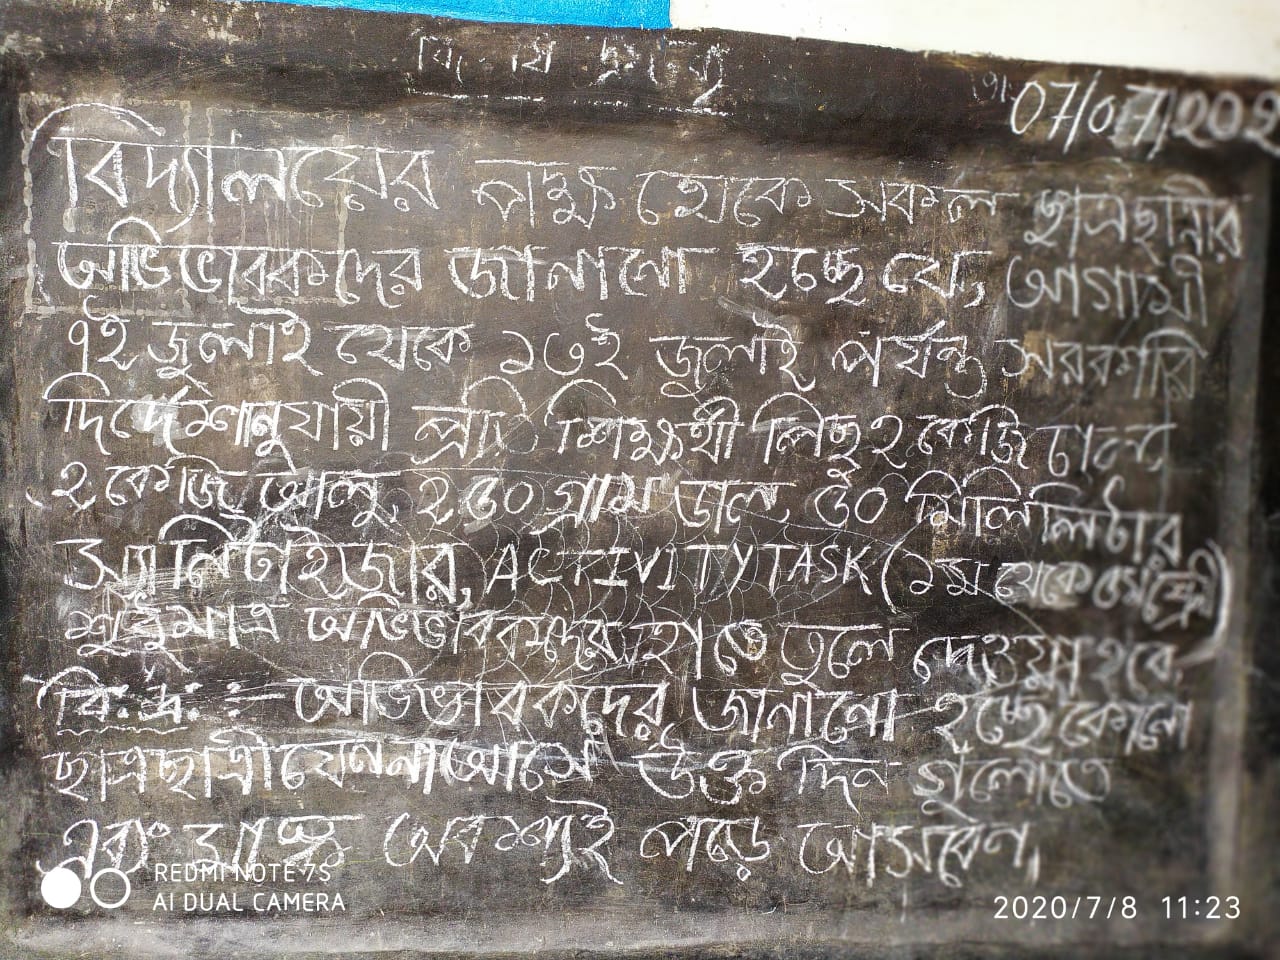 তাং 07/07/202
বিদ্যালয়ের পক্ষ থেকে সকল ছাত্রছাত্রীর
অভিভাবকদের জানানো হচ্ছে যে, আগামী
৭ই জুলাই থেকে ১৩ই জুলাই পর্যন্ত সরকারি
নির্দেশানুযায়ী প্রতি শিক্ষার্থী পিছু ২ কেজি চাল
২ কেজি আলু, ২৫০ গ্রাম ডাল, ৫০ মিলিলিটার
স্যানিটাইজার, ACTIVITY TASK (১ম থেকে
শুধুমাত্র অভিভাবকদের হাতে তুলে দেওয়া হবে
বি:দ্র: :- অভিভাবকদের জানানো হচ্ছে কোনো
ছাত্রছাত্রী যেন না আসে উক্ত দিন গুলোতে
এবং মাস্ক অবশ্যই পড়ে আসবেন।
REDMI NOTE 7S
AI DUAL CAMERA
2020/7/8 11:23